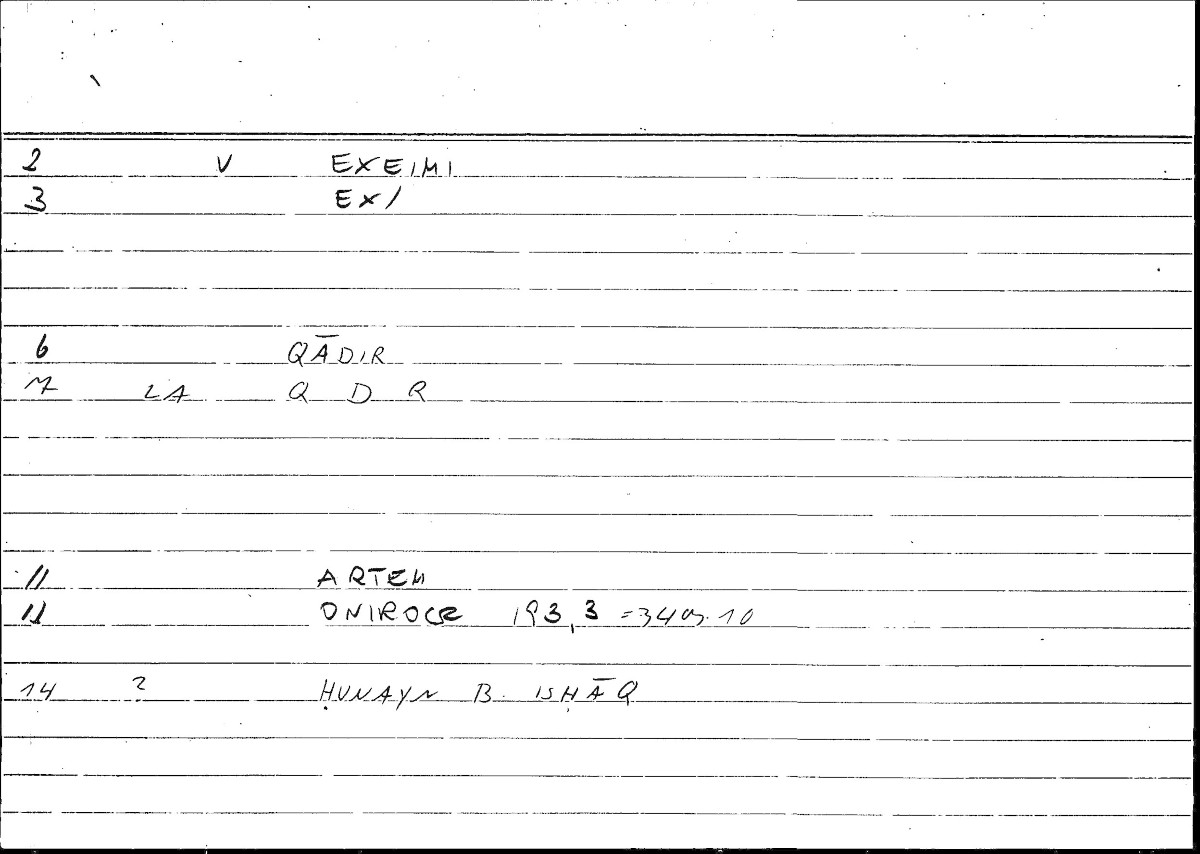 2 V EXEIMI
3 EX/
6 QĀDIR
7 LA Q D R
11 ARTEM
12 ONIROCR 193,3 =340,10
14 ? ḤUNAYN B. ISḤĀQ